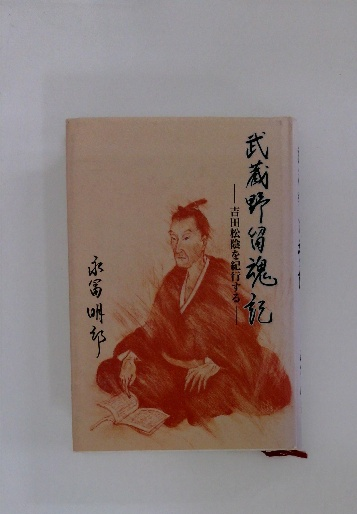 武蔵野留魂記
―吉田松陰を紀行する―
永冨明郎